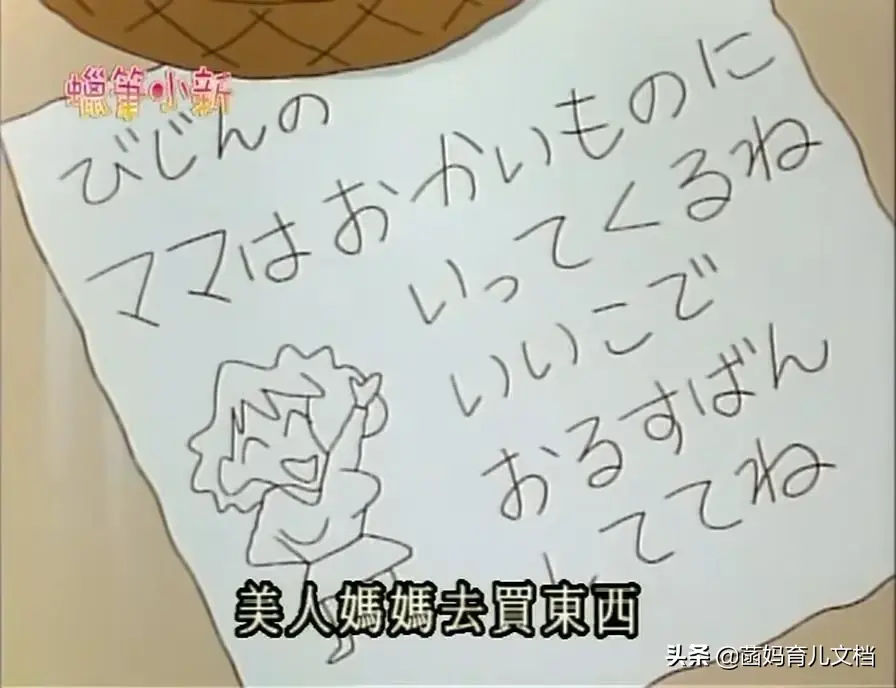 蠟筆小新
びじんの
ママはおかいものに
いってくるね
いいこで
おるすばん
しててね
美人媽媽去買東西
头条 @菡妈育儿文档